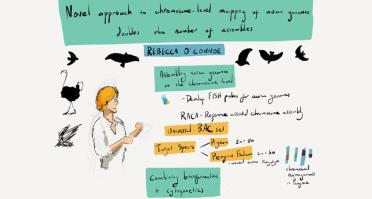 Novel approach to chromosome-level mapping of avian genomes
doubles the number of assemblies
REBECCA O'CONNOR
Assembling avian genomes
to the chromosome level
- Develop FISH probes for avian genomes
RACA - Reference assisted chromosome assembly
Universal BAC set
Target Species
Pigeon 2n=80
Peregrine Falcon 2n=50
chromosomal
rearrangements
in Peregrine
Combining bioinformatics
+ cytogenetics